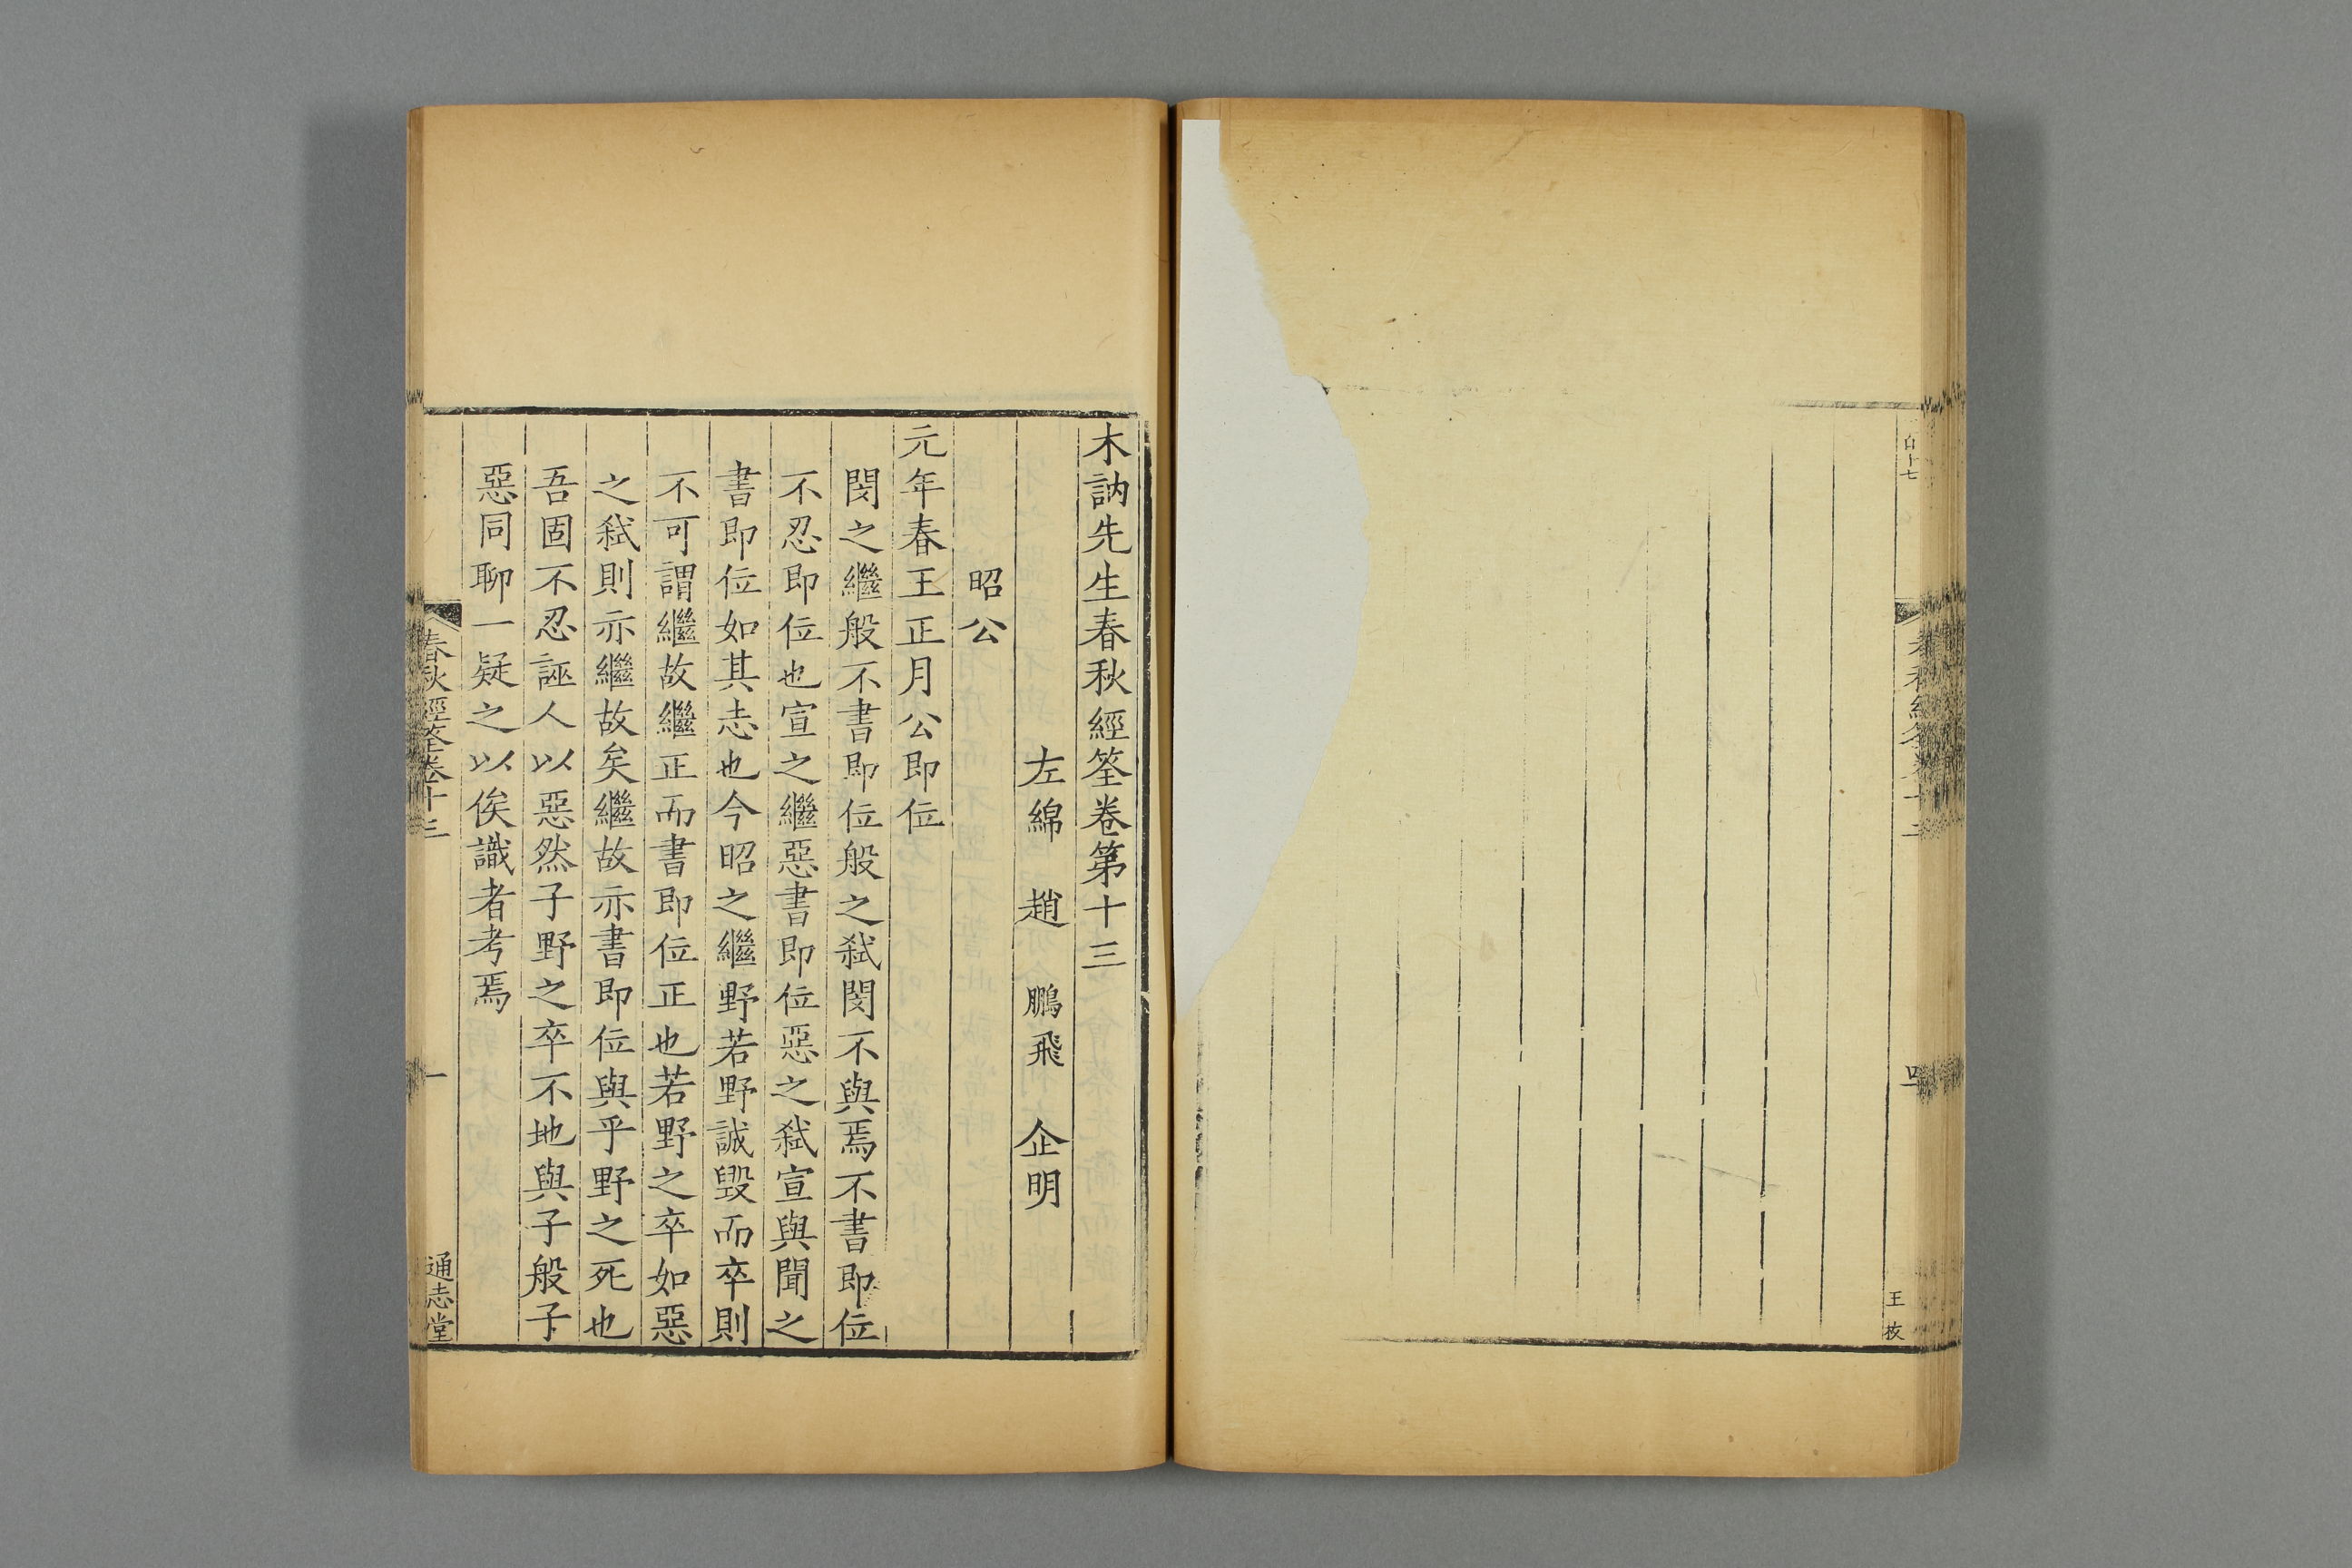 木訥先生春秋經筌卷第十三
左綿 趙 鵬飛 企明
昭公
元年春王正月公即位
閔之繼般不書即位般之弑閔不與焉不書即位
不忍即位也宣之繼惡書即位惡之弑宣與聞之
書即位如其志也今昭之繼野若野誠毀而卒則
不可謂繼故繼正而書即位正也若野之卒如惡
之弑則亦繼故矣繼故亦書即位與乎野之死也
吾固不忍誣人以惡然子野之卒不地與子般子
惡同聊一疑之以俟識者考焉
春秋經筌卷十三
一
通志堂